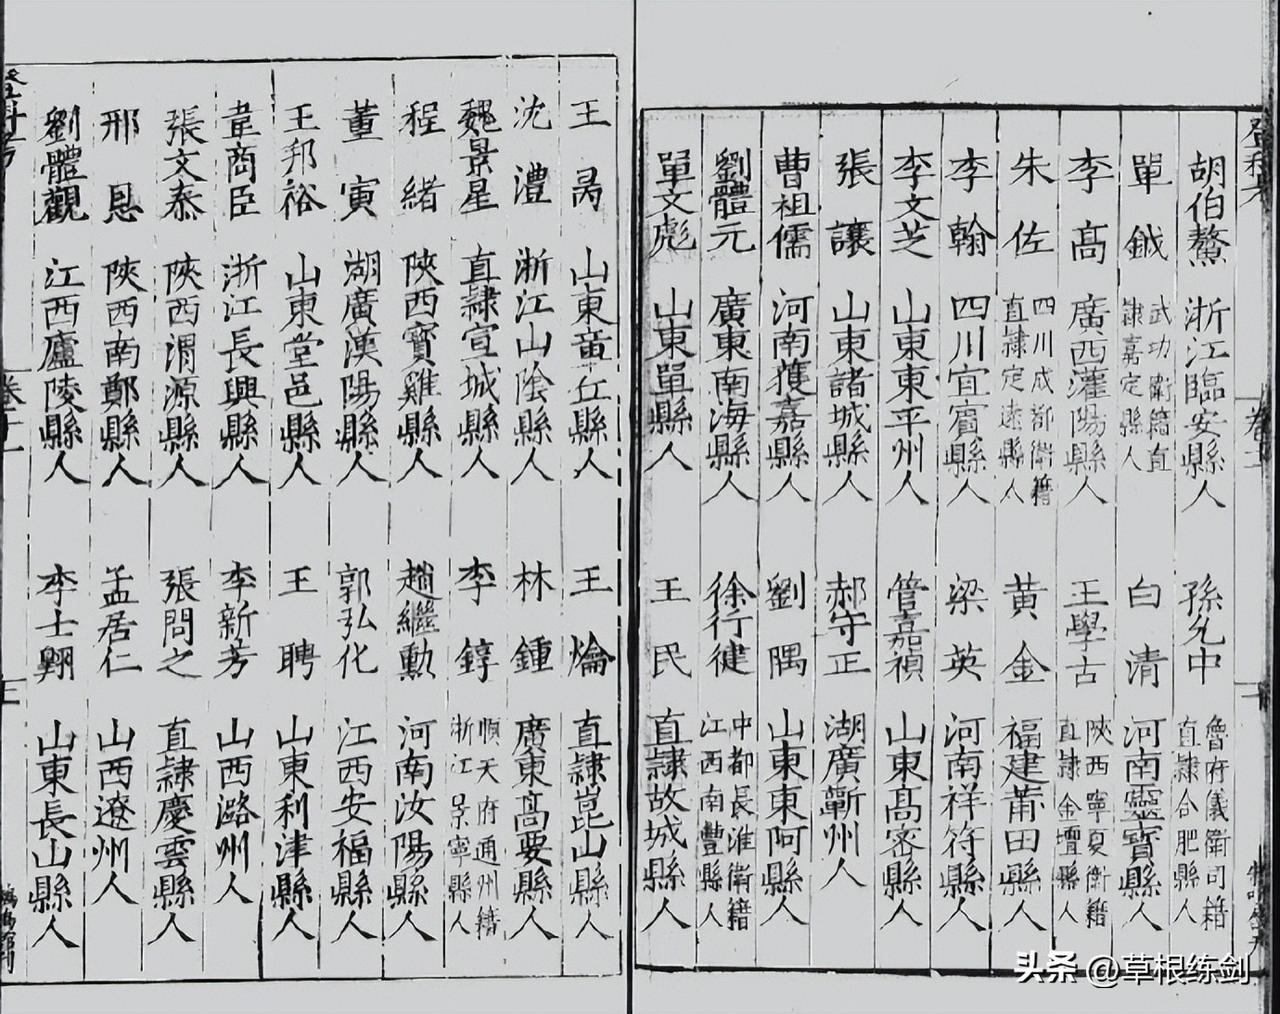 胡伯鰲 浙江臨安縣人 孫允中 魯府儀衛司籍直隸合肥縣人
單鉞 武功衛籍直隸嘉定縣人 白清 河南靈寶縣人
李高 廣西灌陽縣人 王學古 陝西寧夏衛籍直隸金壇縣人
朱佐 四川成都衛籍直隸定遠縣人 黃金 福建莆田縣人
李翰 四川宜賓縣人 梁英 河南祥符縣人
李文芝 山東東平州人 管嘉禎 山東高密縣人
張讓 山東諸城縣人 郝守正 湖廣蘄州人
曹祖儒 河南獲嘉縣人 劉隅 山東東阿縣人
劉體元 廣東南海縣人 徐行健 中都長淮衛籍江西南豐縣人
單文彪 山東單縣人 王民 直隸故城縣人
王 山東章丘縣人 王爚 直隸崑山縣人
沈澧 浙江山陰縣人 林鍾 廣東高要縣人
魏景星 直隸宣城縣人 李錞 順天府通州籍浙江景寧縣人
程緒 陝西寶雞縣人 趙繼勳 河南汝陽縣人
董寅 湖廣漢陽縣人 郭弘化 江西安福縣人
王邦裕 山東堂邑縣人 王聘 山東利津縣人
韋商臣 浙江長興縣人 李新芳 山西潞州人
張文泰 陝西渭源縣人 張問之 直隸慶雲縣人
邢恩 陝西南鄭縣人 孟居仁 山西遼州人
劉體觀 江西廬陵縣人 李士翱 山東長山縣人
头条 @草根练剑